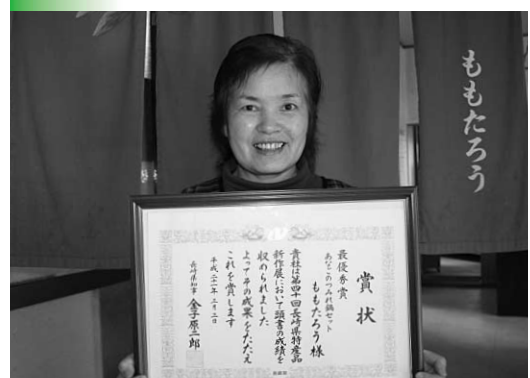 ももたろう
賞状
最優秀賞
あなごのつみれ鍋セット
ももたろう様
貴社は第四十回長崎県特産品
新作展において頭書の成績を
収められました
よってその成果をたたえ
これを賞します
平成二十一年二月二日
長崎県知事 金子原二郎